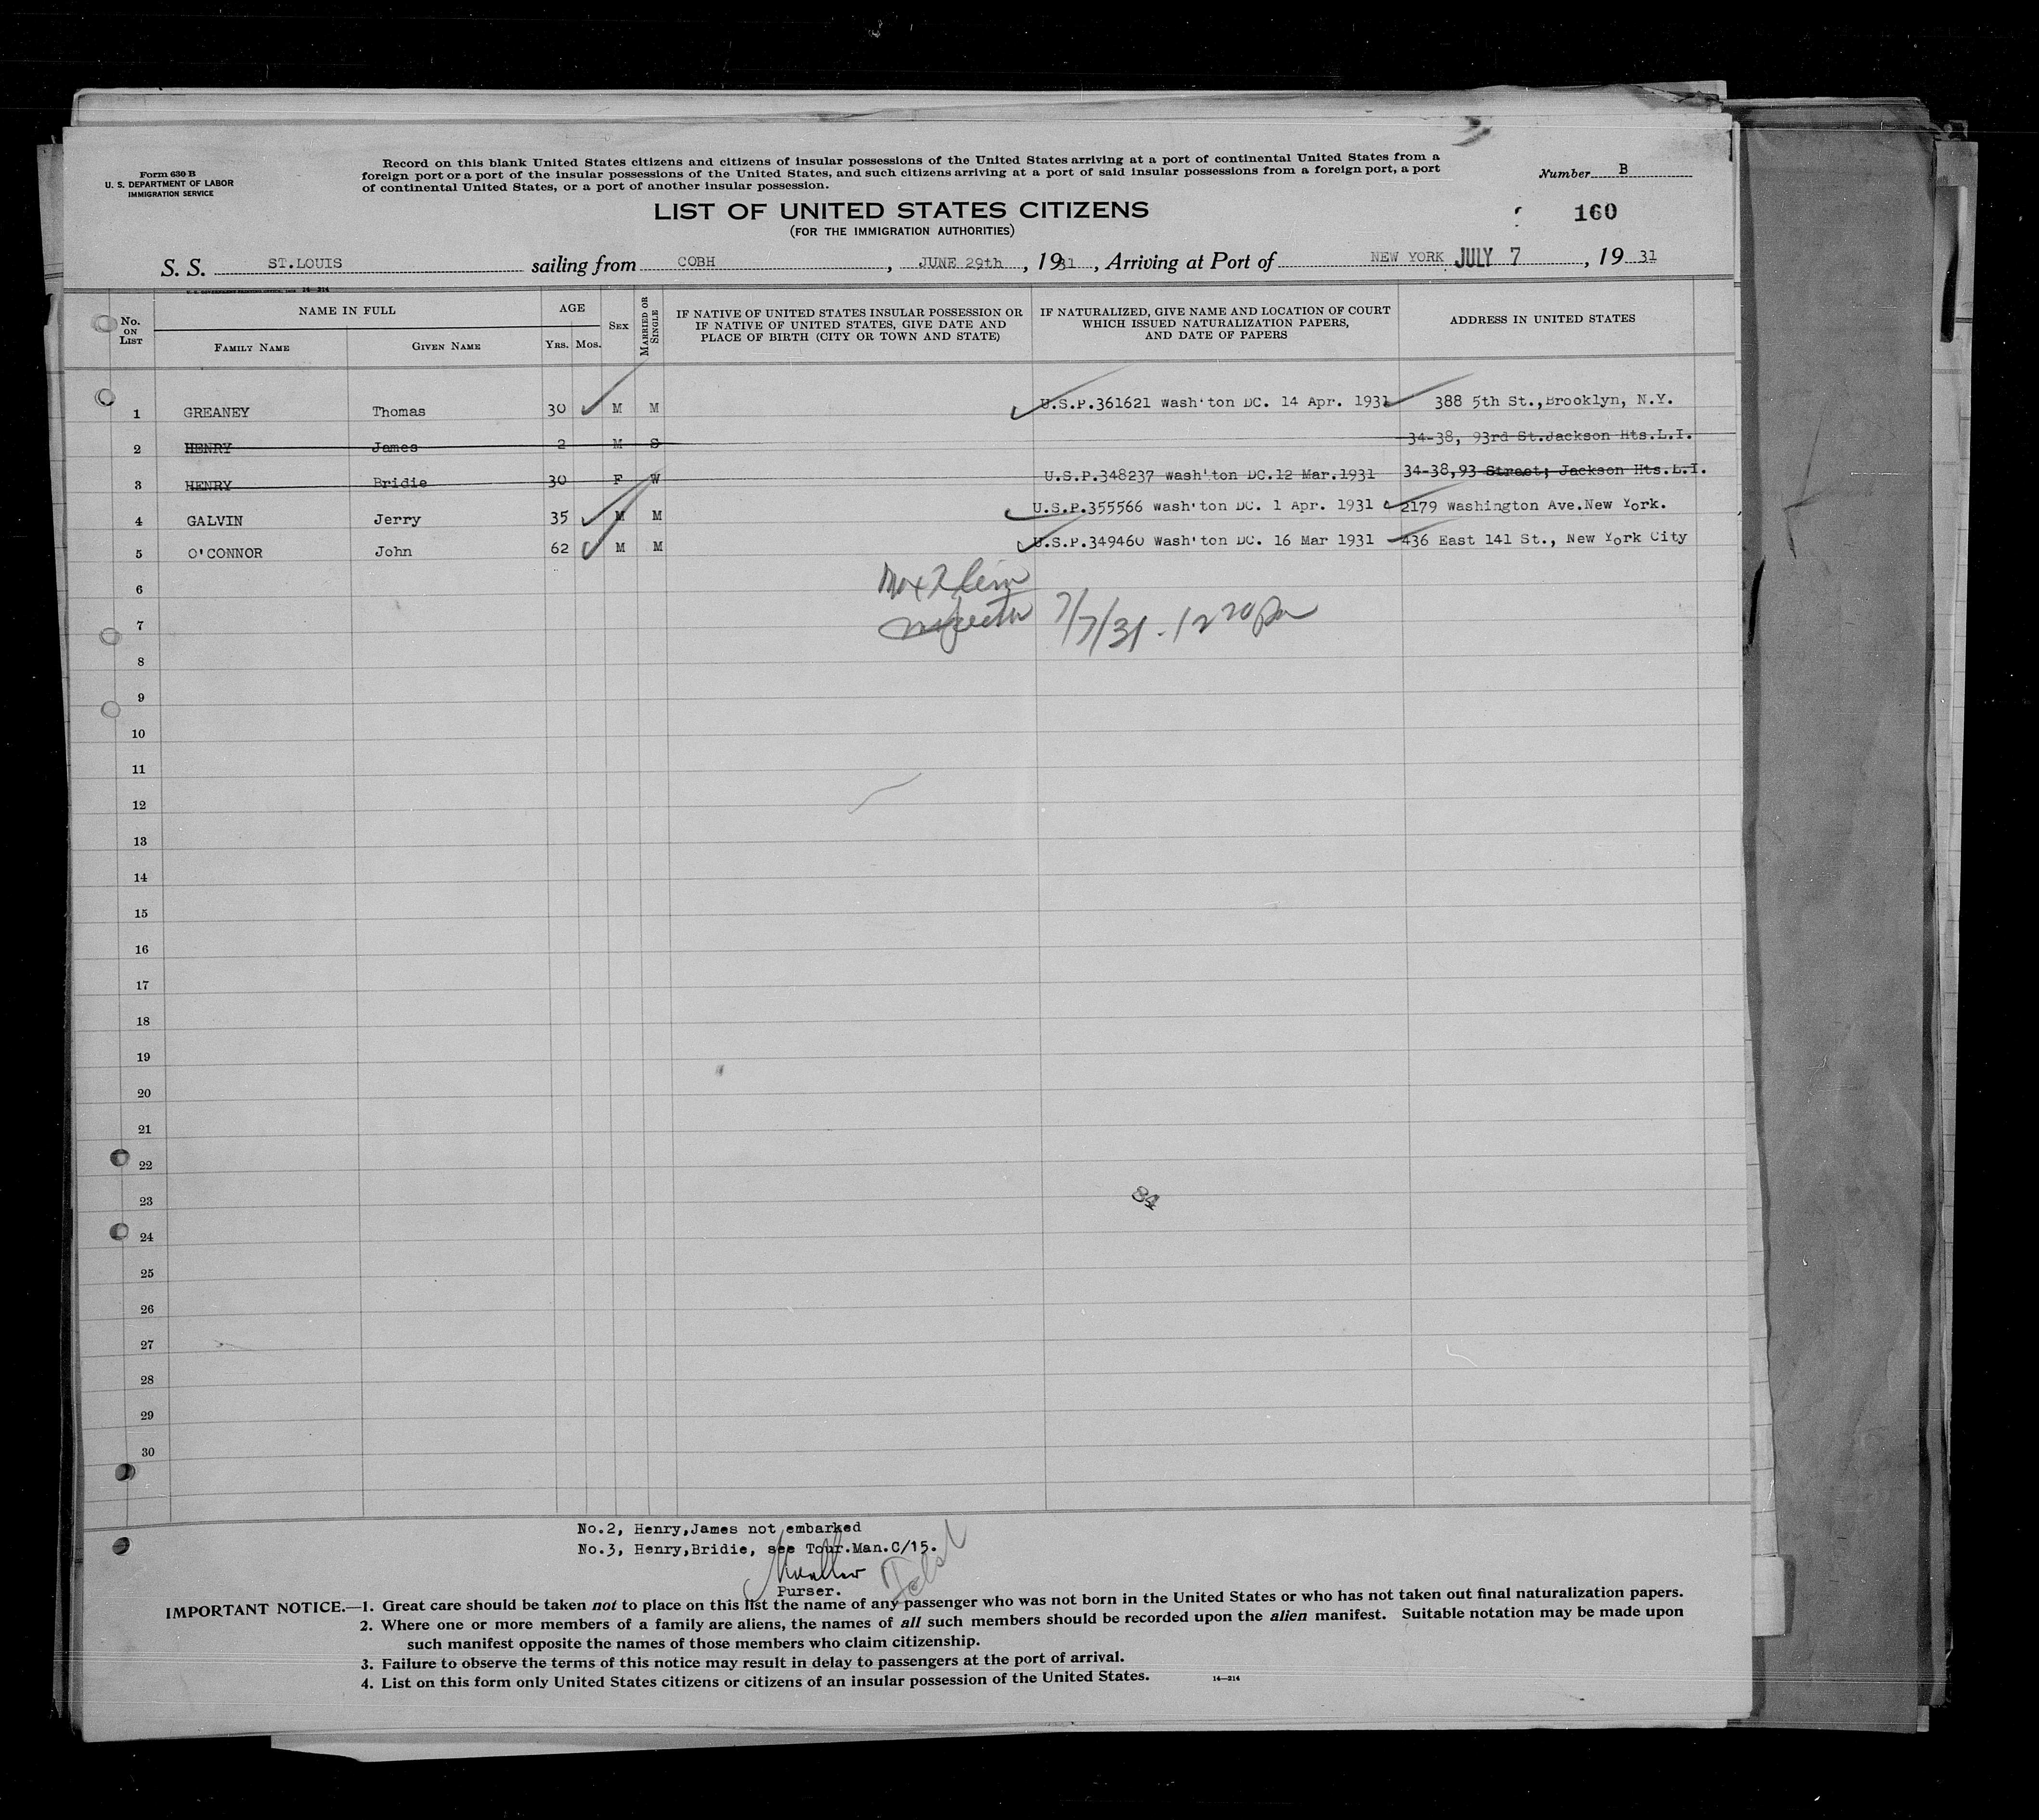 Form 630 B
U. S. DEPARTMENT OF LABOR
IMMIGRATION SERVICE
Record on this blank United States citizens and citizens of insular possessions of the United States arriving at a port of continental United States from a
foreign port or a port of the insular possessions of the United States, and such citizens arriving at a port of said insular possessions from a foreign port, a port
of continental United States, or a port of another insular possession.
Number B
LIST OF UNITED STATES CITIZENS
160
(FOR THE IMMIGRATION AUTHORITIES)
S. S. ST.LOUIS sailing from COBH, JUNE 29th, 1931, Arriving at Port of NEW YORK JULY 7, 19 31
14—214
No. ON LIST NAME IN FULL FAMILY NAME GIVEN NAME AGE YRS. MOS. SEX MARRIED OR SINGLE IF NATIVE OF UNITED STATES INSULAR POSSESSION OR IF NATIVE OF UNITED STATES, GIVE DATE AND PLACE OF BIRTH (CITY OR TOWN AND STATE) IF NATURALIZED, GIVE NAME AND LOCATION OF COURT WHICH ISSUED NATURALIZATION PAPERS, AND DATE OF PAPERS ADDRESS IN UNITED STATES
1 GREANEY Thomas 30 M M U.S.P.361621 Wash'ton DC. 14 Apr. 1931 388 5th St.,Brooklyn, N.Y.
2 HENRY James 2 M S 34-38, 93rd St.Jackson Hts.L.I.
3 HENRY Bridie 30 F W U.S.P.348237 Wash'ton DC.12 Mar.1931 34-38,93 Street; Jackson Hts.L.I.
4 GALVIN Jerry 35 M M U.S.P.355566 Wash'ton DC. 1 Apr. 1931 2179 Washington Ave.New York.
5 O'CONNOR John 62 M M U.S.P.349460 Wash'ton DC. 16 Mar 1931 436 East 141 St., New York City
6
7 7/7/31 - 12 20 pm
8
9
10
11
12
13
14
15
16
17
18
19
20
21
22
23
84
24
25
26
27
28
29
30
No.2, Henry,James not embarked
No.3, Henry,Bridie, see Tour.Man.C/15.
Purser.
IMPORTANT NOTICE.—1. Great care should be taken not to place on this list the name of any passenger who was not born in the United States or who has not taken out final naturalization papers.
2. Where one or more members of a family are aliens, the names of all such members should be recorded upon the alien manifest. Suitable notation may be made upon
such manifest opposite the names of those members who claim citizenship.
3. Failure to observe the terms of this notice may result in delay to passengers at the port of arrival.
4. List on this form only United States citizens or citizens of an insular possession of the United States. 14—214